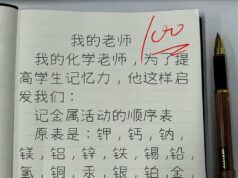 我的老师
100
我的化学老师，为了提
高学生记忆力，他这样启
发我们：
记金属活动的顺序表
原表是：钾，钙，钠，
镁，铝，锌，铁，锡，铅，
氢，铜，汞，银，铂，金